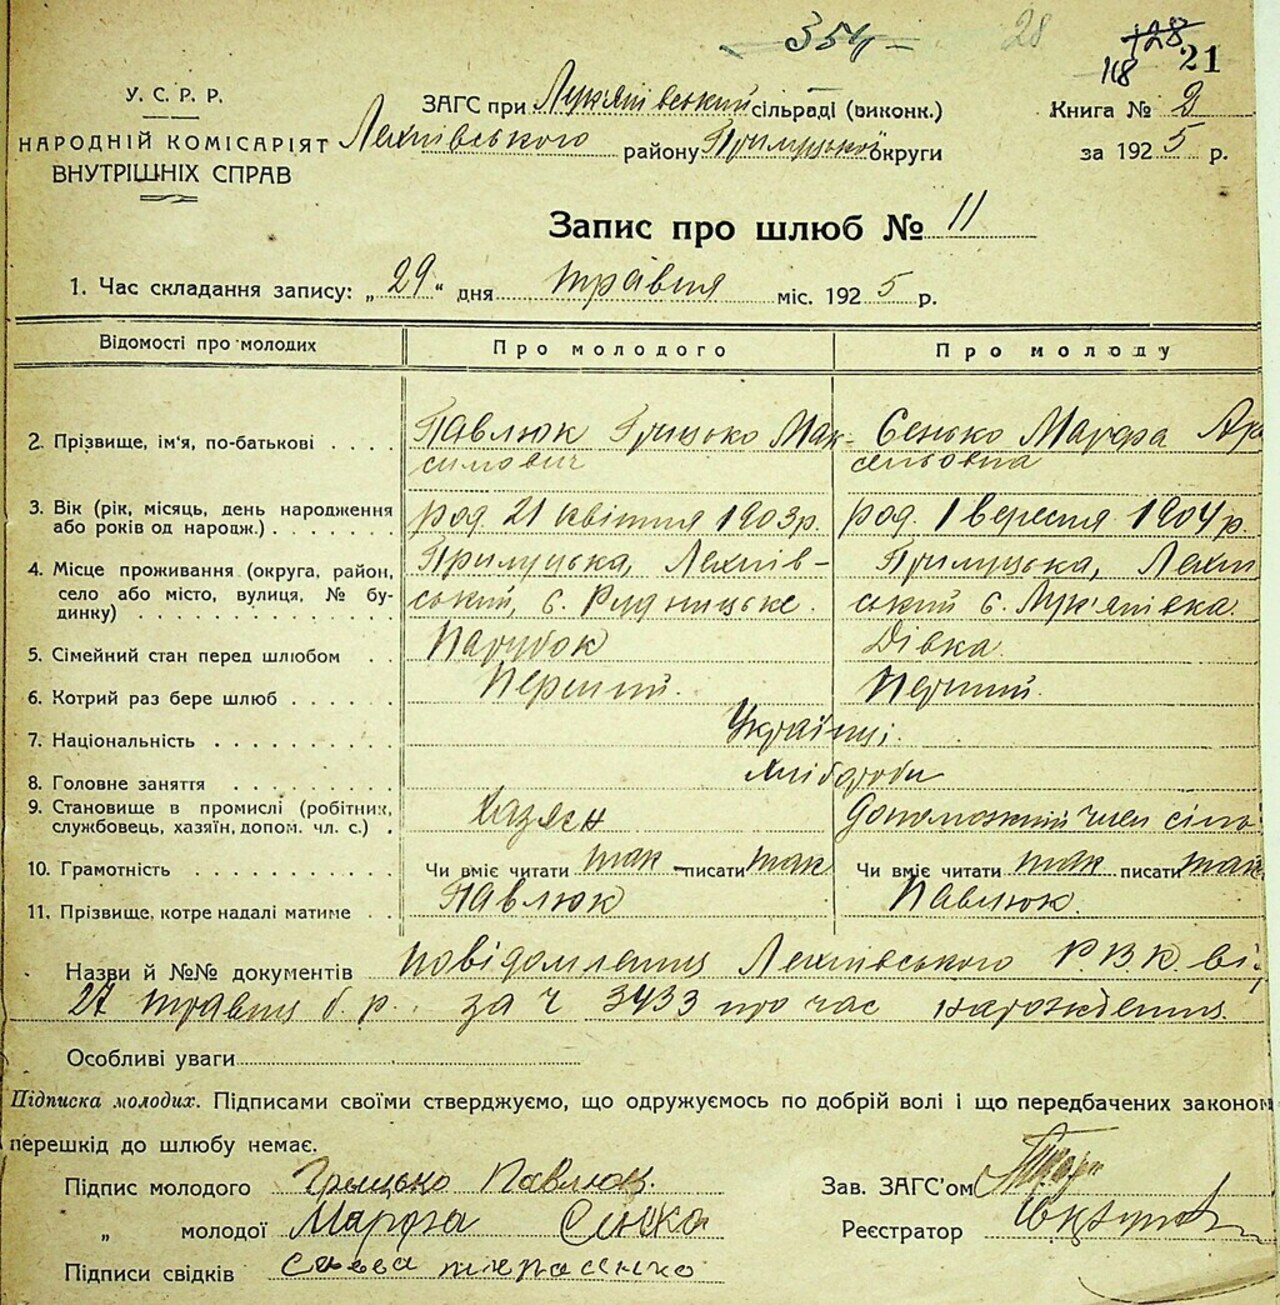 354 28 128
118 21
У. С. Р. Р.
НАРОДНІЙ КОМІСАРІЯТ
ВНУТРІШНІХ СПРАВ
ЗАГС при Лукʼянівський сільраді (виконк.)
Лехнівського району Прилуцької округи
Книга № 2
за 1925 р.
Запис про шлюб № 11
1. Час складання запису: „29“ дня травня міс. 1925 р.
Відомості про молодих Про молодого Про молоду
2. Прізвище, ім'я, по-батькові . . . . Павлюк Грицько Мак- Сенько Марфа Ар
симович сеньовна
3. Вік (рік, місяць, день народження род. 21 квітня 1903р. род. 1 вересня 1904р.
або років од народж.) . . . . . . .
4. Місце проживання (округа, район, Прилуцька, Лехнів- Прилуцька, Лехн
село або місто, вулиця, № бу- ський, с. Рудницьке. ський с. Лук'янівка.
динку) . . . . . . . . . . . . . .
5. Сімейний стан перед шлюбом . . Парубок Дівка
6. Котрий раз бере шлюб . . . . . . Перший. Перший.
7. Національність . . . . . . . . . . Українці.
8. Головне заняття . . . . . . . . хлібороби
9. Становище в промислі (робітник, Хазяєн Допоможний член сіль
службовець, хазяїн, допом. чл. с.) .
10. Грамотність . . . . . . . . . . . Чи вміє читати так писати так Чи вміє читати так писати так
11. Прізвище, котре надалі матиме . . Павлюк Павлюк.
Назви й №№ документів повідомлення Лехнівського Р.В.К. ві
27 травня б.р. за ч 3433 про час нарождення.
Особливі уваги
Підписка молодих. Підписами своїми стверджуємо, що одружуємось по добрій волі і що передбачених законом
перешкід до шлюбу немає.
Підпис молодого Грыцько Павлюк.
Зав. ЗАГС'ом
„ молодої Марфа Сенско
Реєстратор
Підписи свідків